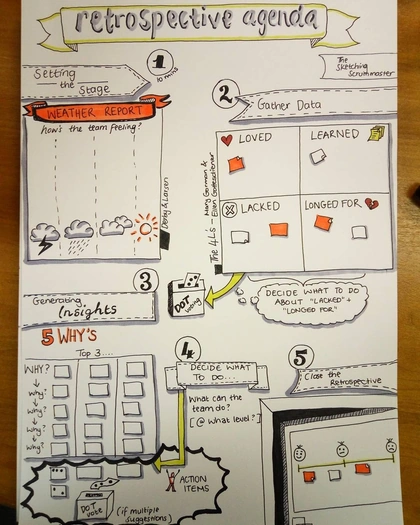 retrospective agenda
The
Sketching
Scrummaster
1
10 mins
Setting
the
Stage
WEATHER REPORT
how's the team feeling?
Derby & Larsen
2
Gather Data
LOVED
LEARNED
LACKED
LONGED FOR
The 4L's – Mary Gorman &
Ellen Gottesdiener
DECIDE WHAT TO DO
ABOUT "LACKED" +
"LONGED FOR"
3
Generating
Insights
DOT
Voting
5 WHY'S
Top 3....
WHY?
Why?
Why?
Why?
Why?
DOT
Vote
(if multiple
suggestions)
ACTION
ITEMS
4
DECIDE WHAT
TO DO...
What can the
team do?
[@ What level?]
5
Close the
Retrospective